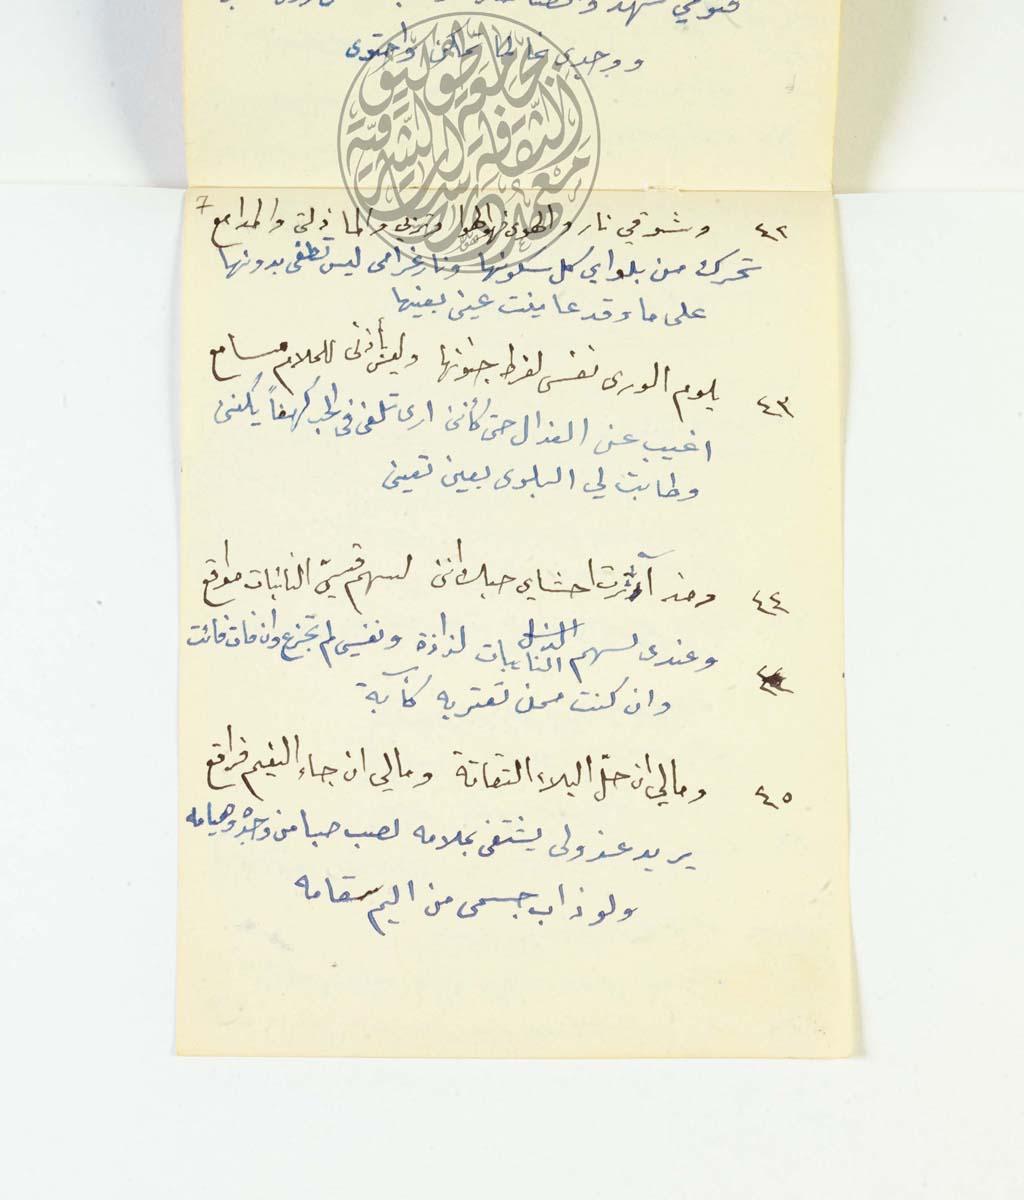 ووجدي
٧
٤٢ وشوقي نار والهوى فهو الهوا وتربي والما ذلتي والمدامع
تحرك من بلواي كل سكونها ونار غرامى ليس تطفى بدونها
على ما وقد عاينت عينى بعينها
٤٣ يلوم الورى نفسى لفرط جنونها وليس بأذنى للملام مسامع
اغيب عن العذال حتى كأننى ارى تلفى فى الحب كهفاً يكننى
وطابت لي البلوى بعين تعينى
٤٤ ومذ احشاي حبك اننى لسهم قسيّ النائبات مواقع
وعندى لسهم النائبات لذاذة ونفسى لم تجزع وان فات فائت
وان كنت ممن تعتريه كآبة
٤٥ ومالي ان حلّ البلاء التفاتة ومالي ان جاء النعيم فراقع
يريد عذولى يشتفى بملامه لصب صبا من وجده وهيامه
ولو ذاب جسمى من اليم سقامه